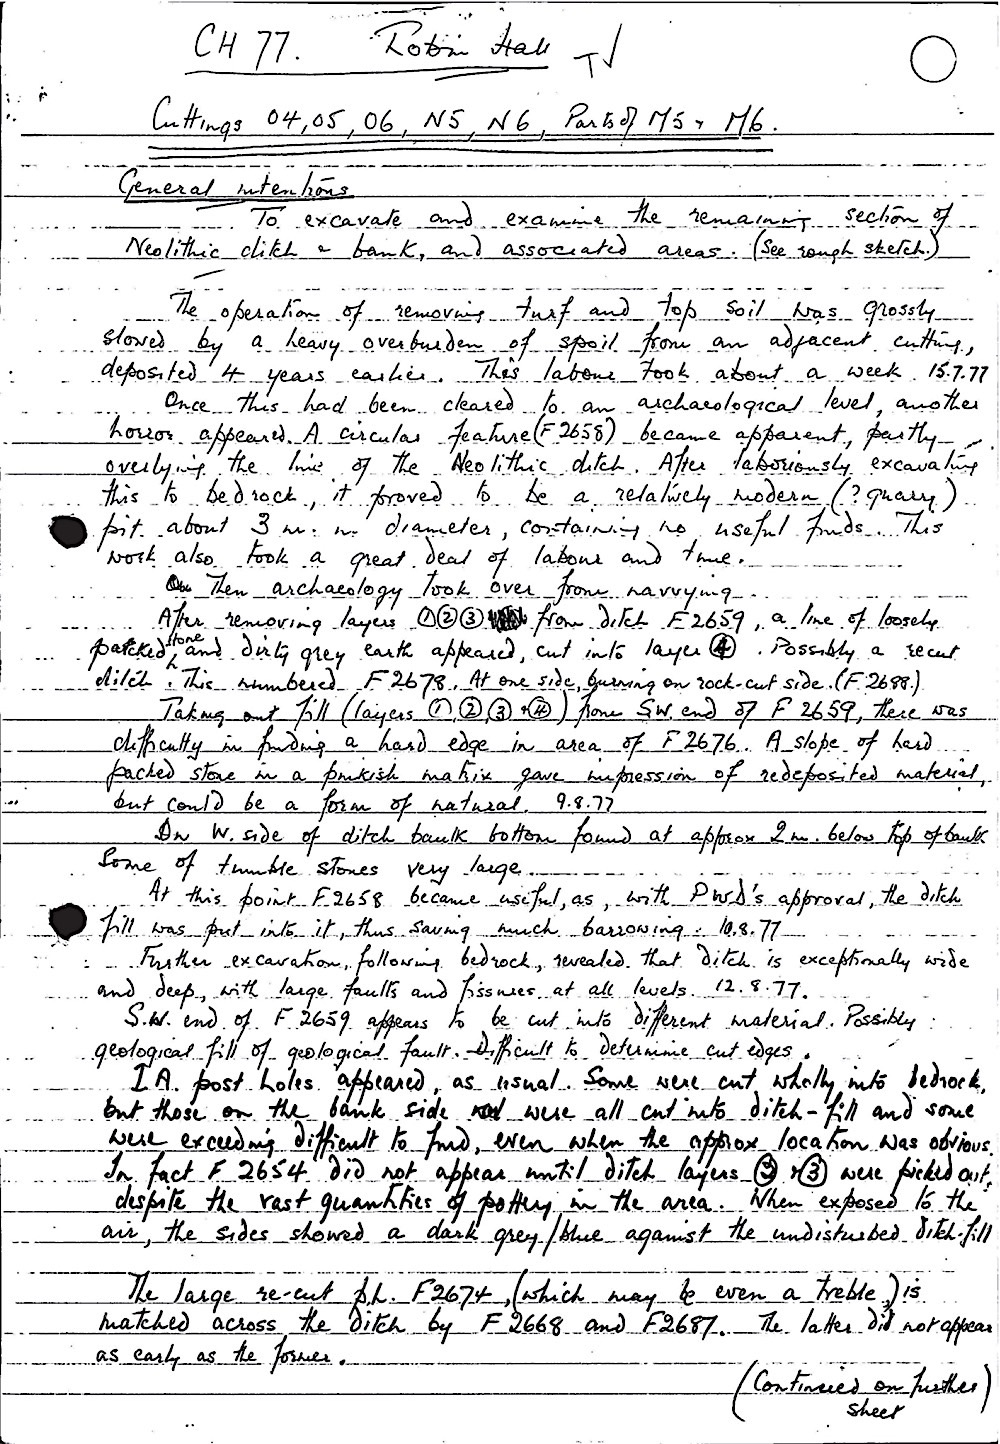 CH 77. Robin Hall
Cuttings 04, 05, 06, N5, N6, Parts of M5 + M6.
General intentions
To excavate and examine the remaining section of
Neolithic ditch + bank, and associated areas. (See rough sketch.)
The operation of removing turf and top soil was grossly
slowed by a heavy overburden of spoil from an adjacent cutting,
deposited 4 years earlier. This labour took about a week 15.7.77
Once this had been cleared to an archaeological level, another
horror appeared. A circular feature (F 2658) became apparent, partly
overlying the line of the Neolithic ditch. After laboriously excavating
this to bedrock, it proved to be a relatively modern (? quarry)
pit about 3 m. in diameter, containing no useful finds. This
work also took a great deal of labour and time.
Then archaeology took over from navvying
After removing layers ① ② ③ from ditch F 2659, a line of loosely
packed stone and dirty grey earth appeared, cut into layer ④. Possibly a recut
ditch. This numbered F 2678. At one side, burning on rock-cut side. (F 2688.)
Taking out fill (layers ①, ②, ③ + ④) from S.W. end of F 2659, there was
difficulty in finding a hard edge in area of F 2676. A slope of hard
packed stone in a pinkish matrix gave impression of redeposited material,
but could be a form of natural. 9.8.77
On W. side of ditch baulk bottom found at approx 2 m. below top of baulk
Some of tumble stones very large.
At this point F 2658 became useful, as, with PWD's approval, the ditch
fill was put into it, thus saving much barrowing. 10.8.77
Further excavation, following bedrock, revealed that ditch is exceptionally wide
and deep, with large faults and fissures at all levels. 12.8.77.
S.W. end of F 2659 appears to be cut into different material. Possibly
geological fill of geological fault. Difficult to determine cut edges.
I A. post holes appeared, as usual. Some were cut wholly into bedrock,
but those on the bank side were all cut into ditch-fill and some
were exceeding difficult to find, even when the approx location was obvious.
In fact F 2654 did not appear until ditch layers ② + ③ were picked out,
despite the vast quantities of pottery in the area. When exposed to the
air, the sides showed a dark grey/blue against the undisturbed ditch-fill
The large re-cut p.h. F2674, (which may be even a treble,) is
matched across the ditch by F 2668 and F2687. The latter did not appear
as early as the former.
(Continued on further
sheet)